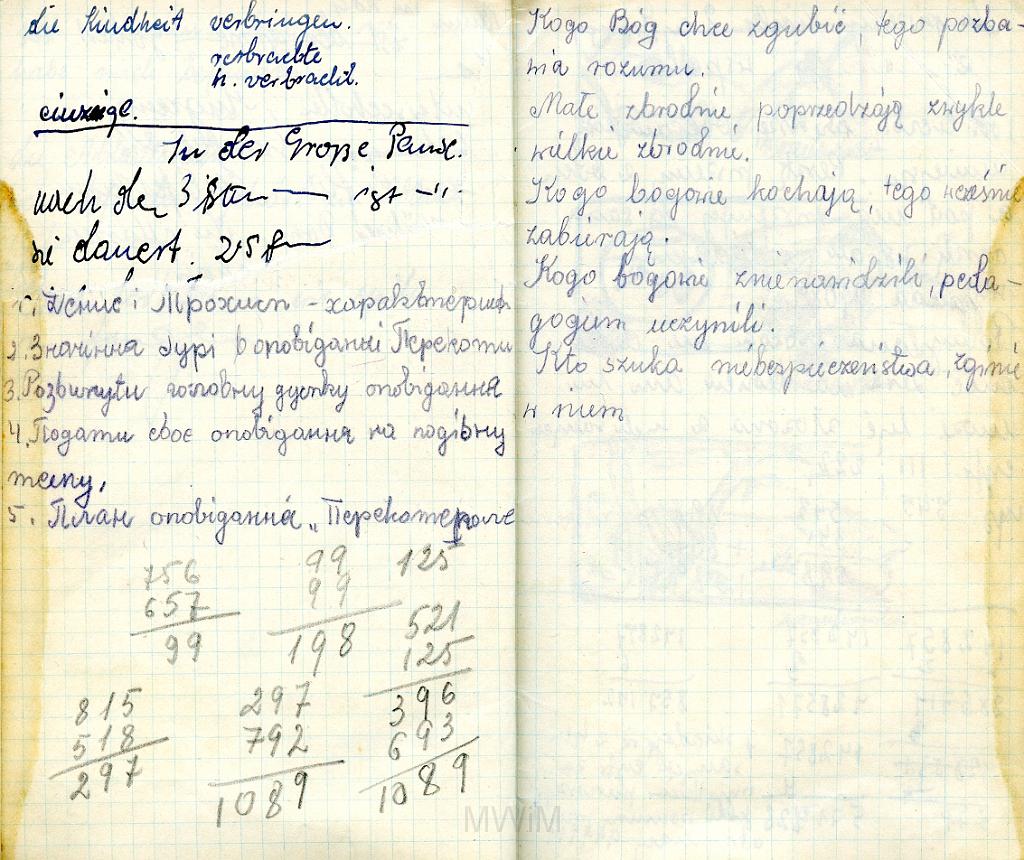 die Kindheit verbringen.
verbrachte
h. verbracht.
einzige.
In der Große Pause.
nach der 3 ist
sie dauert. 25
1. і Прохіст - характеристи
2. Значіння бурі в оповіданні Перекоти
3. Розвинути головну думку оповідання
4. Подати своє оповідання на подібну
тему.
5. План оповідання „Перекотиполе
756
657
99
99
99
198
125
521
125
396
693
1089
815
518
297
297
792
1089
Kogo Bóg chce zgubić, tego pozba-
wia rozumu.
Małe zbrodnie poprzedzają zwykle
wielkie zbrodnie.
Kogo bogowie kochają, tego wcześnie
zabierają.
Kogo bogowie znienawidzili, peda-
gogiem uczynili.
Kto szuka niebezpieczeństwa, zginie
w niem
MWiM